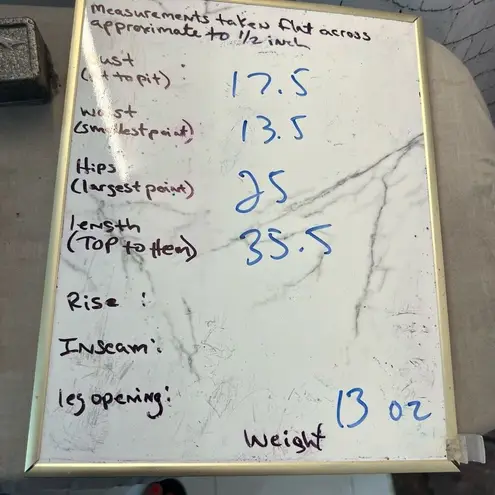 measurements taken flat across
approximate to 1/2 inch
ust :
(it to pit) 17.5
waist
(smallest point) 13.5
Hips
(largest point) 25
length
(TOP to Hem) 35.5
Rise :
Inseam:
leg opening:
13 oz
Weight